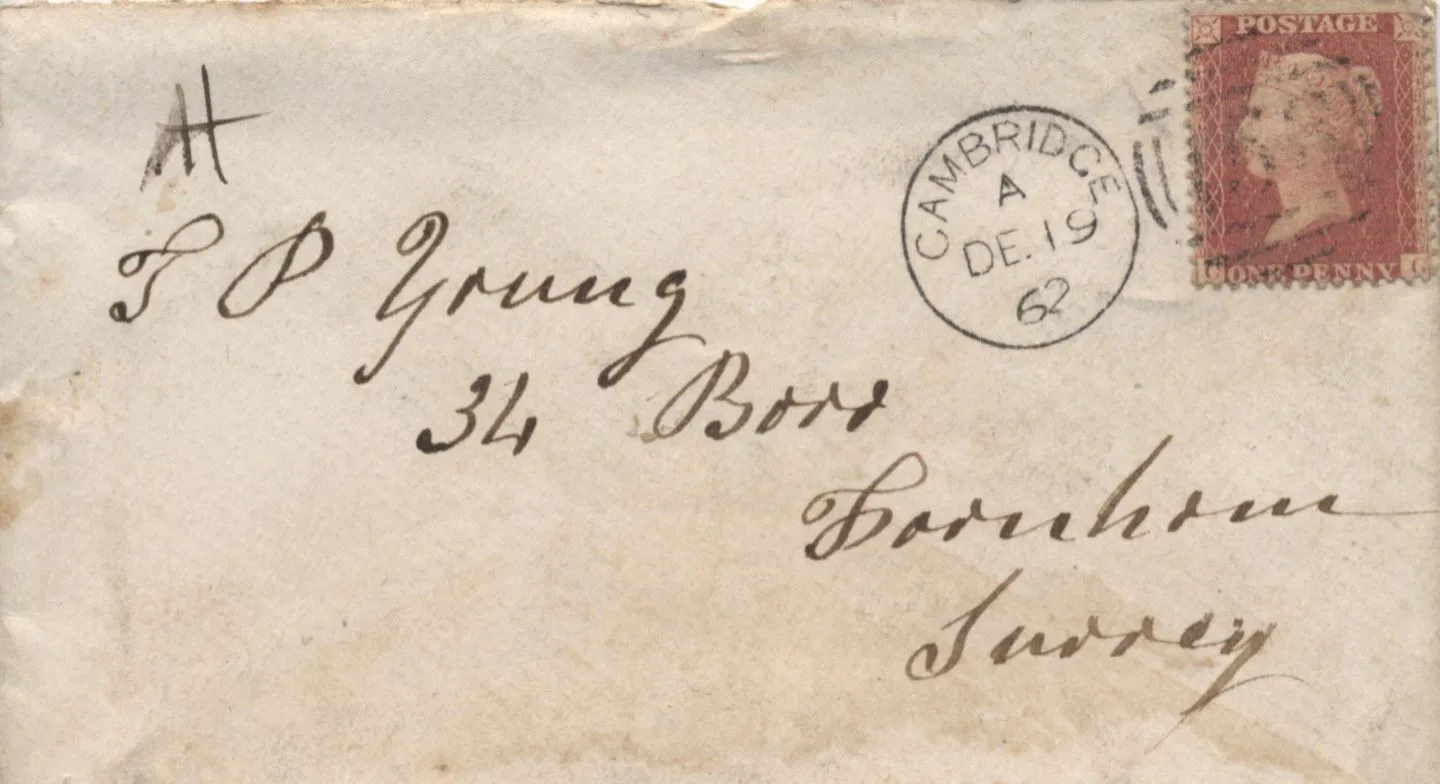 POSTAGE
ONE PENNY
C G
CAMBRIDGE
A
DE. 19
62
H
T P Young
34
Farnham
Surrey